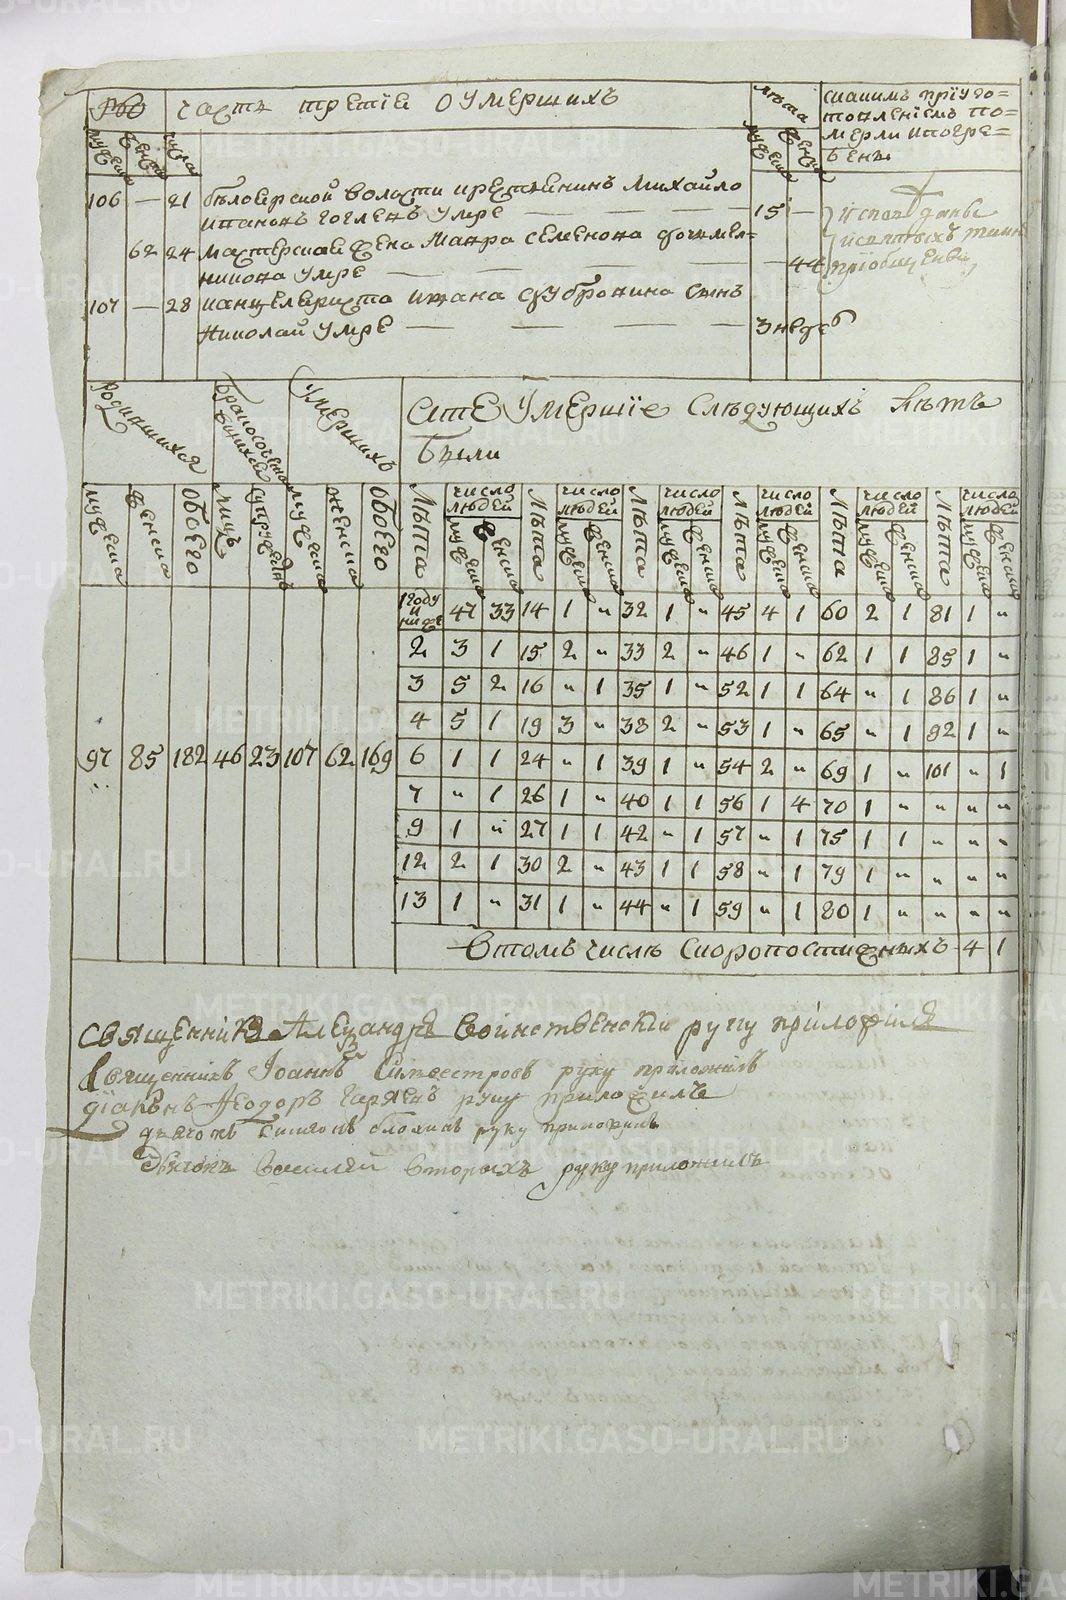 часть третіе о умершихъ
лѣта
мужеска
женска
числа
мужеска
женска
скакимъ пріуго=
товленіемъ по=
мерли ипогре=
бены
106 — 21 волости крестьянинъ Михайло
умре — — — — 15 —
62 24 мастерская жена Мавра Семенова
умре — — — — — 44
107 — 28 канцеляриста Ивана сынъ
Николай умре — — — — 3 недель
Родившихся
Умершихъ
Сіи Умершіе Слѣдующихъ лѣтъ
были
мужеска женска обоего лицъ мужеска женска обоего
лѣта число людей мужеска женска лѣта число людей мужеска женска лѣта число людей мужеска женска лѣта число людей мужеска женска лѣта число людей мужеска женска лѣта число людей мужеска женска
1 году и ниже 47 33 14 1 " 32 1 " 45 4 1 60 2 1 81 1 "
2 3 1 15 2 " 33 2 " 46 1 " 62 1 1 85 1 "
3 5 2 16 " 1 35 1 " 52 1 1 64 " 1 86 1 "
4 5 1 19 3 " 38 2 " 53 1 " 65 " 1 92 1 "
97 85 182 46 23 107 62 169 6 1 1 24 " 1 39 1 " 54 2 " 69 1 " 101 " 1
7 " 1 26 1 " 40 1 1 56 1 4 70 1 " " " "
9 1 " 27 1 1 42 " 1 57 " 1 75 1 1 " " "
12 2 1 30 2 " 43 1 1 58 " 1 79 1 " " " "
13 1 " 31 1 " 44 " 1 59 " 1 80 1 " " " "
Втомъ числѣ Скоропостижныхъ 4 1
священникъ Александръ Воинственскій руку приложилъ
Священникъ Іоаннъ Силвестровъ руку приложилъ
діаконъ Ѳеодоръ руку приложилъ
руку приложилъ
Дьячокъ Василей Вторыхъ руку приложилъ
METRIKI.GASO-URAL.RU